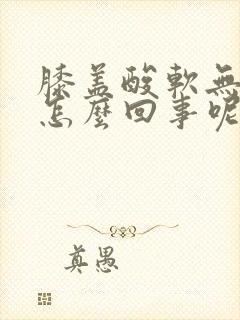 膝盖酸軟無
怎麼回事呢
真愚